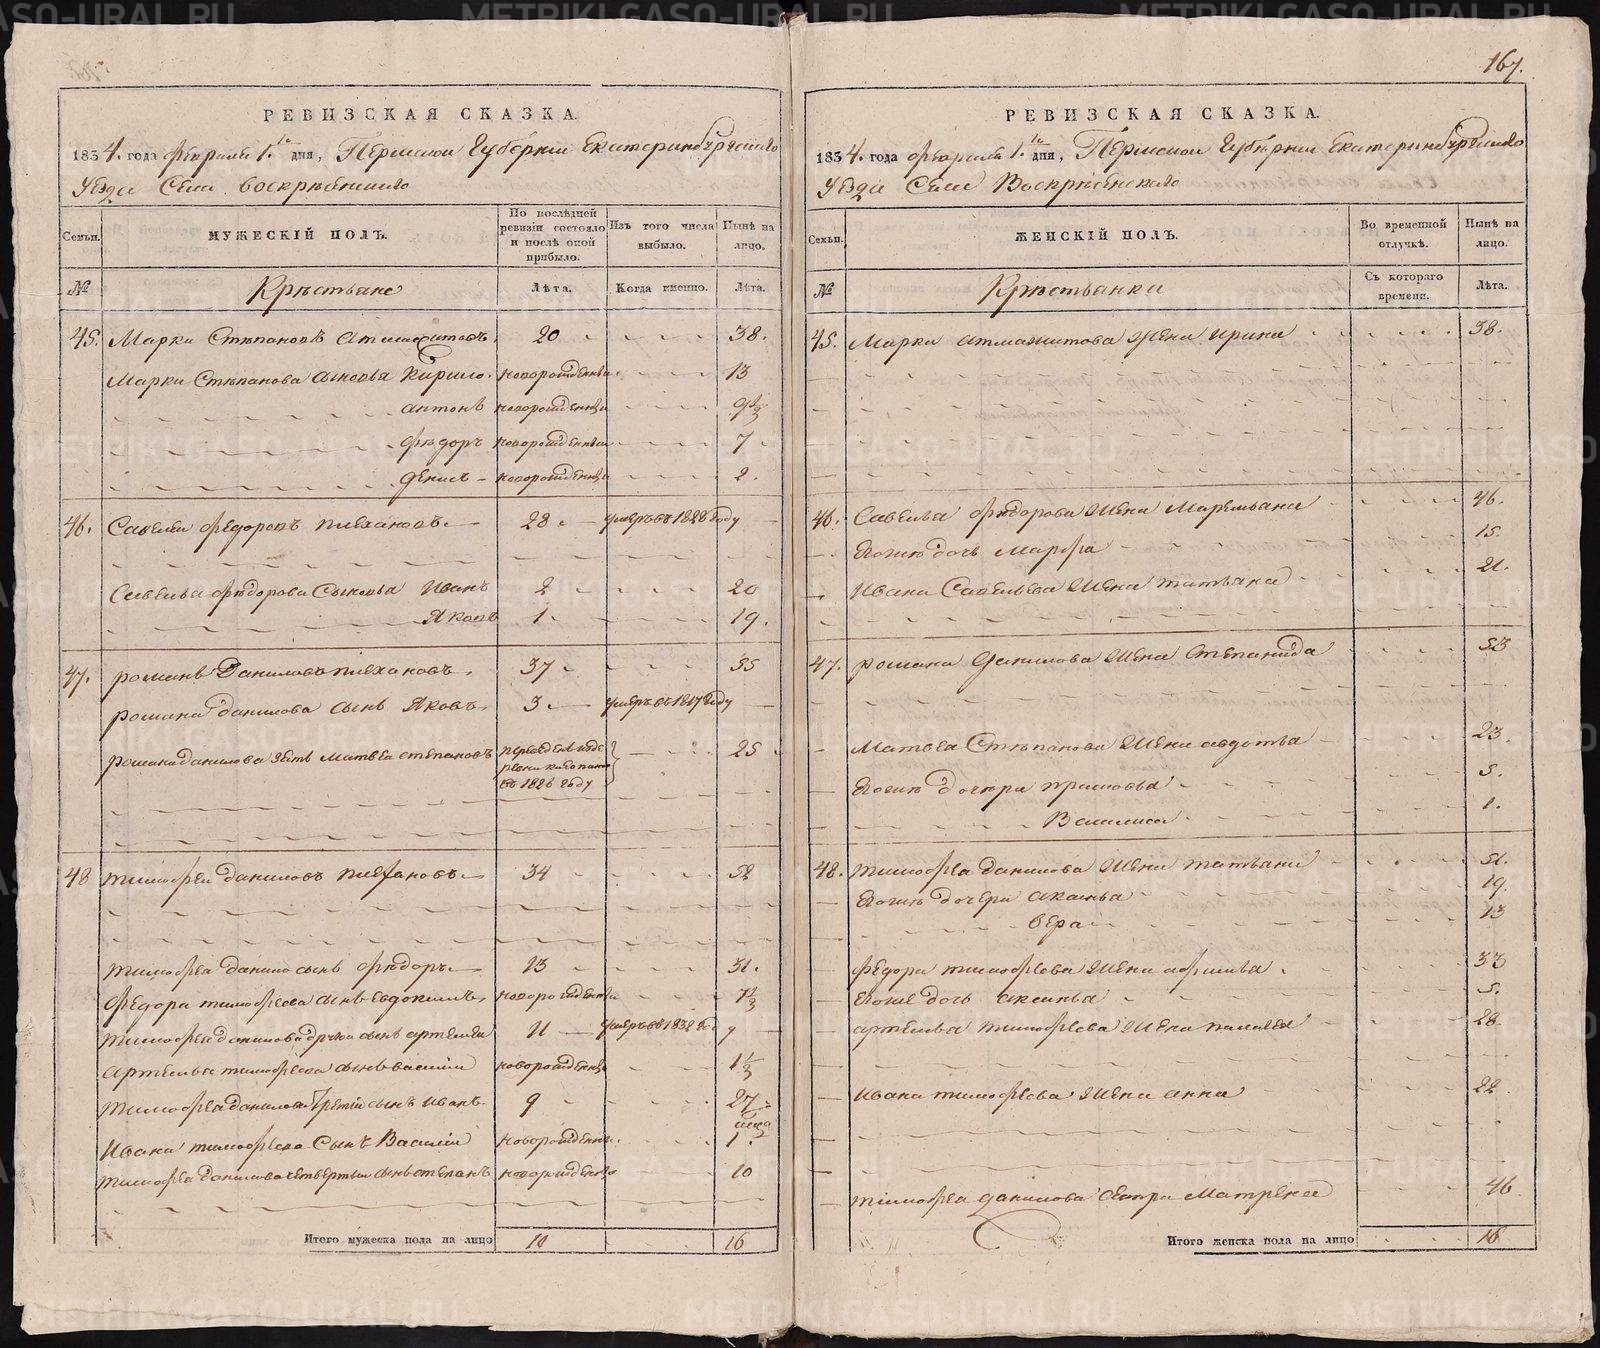 167.
РЕВИЗСКАЯ СКАЗКА.
1834. года февраля 1. го дня, Пермской Губернии Екатеринбургскаго
Уезда Села Воскресенскаго
Семьи.
МУЖЕСКІЙ ПОЛЪ.
По послѣдней ревизіи состояло и послѣ оной прибыло.
Изъ того числа выбыло.
Нынѣ на лицо.
№
Крѣстьяне
Лѣта.
Когда именно.
Лѣта.
45. Марка Степановъ 20 38.
Марка Степанова сыновья Кирило. новорожденны. 13
антонъ новорожденны 9
Федоръ новорожденны 7
денисъ новорожденны 2.
46. Савелеи Федоровъ плехановъ. 28. умеръ въ 1828 году
Савелья Федорова Сыновья Иванъ 2 20
Яковъ 1. 19.
47. романъ Даниловъ плехановъ. 37 55
романа данилова сынъ Яковъ. 3 умеръ въ 1817 году
романа данилова зеть Матвеи степановъ 25
въ 1826 году
48 тимофеи даниловъ плехановъ. 34 52
тимофеа данило сынъ Федоръ. 13 31.
Федора тимофеева сынъ Евдокимъ. новорожденны
тимофеа данилова другои сынъ артемеи 11 умеръ въ 1832 го ду
артемья тимофеева сынъ василии новорожденны 1 1/3
тимофеа данилова Третии сынъ Иванъ 9 27
Ивана тимофеева Сынъ Василии Новорожденны. 1.
тимофеа данилова четвертыи сынъ степанъ новорожденны 10
Итого мужеска пола на лицо 10 16
РЕВИЗСКАЯ СКАЗКА.
1834. года февраля 1. го дня, Пермской Губернии Екатеринбургскаго
Уезда Села Воскресенскаго
Семьи.
ЖЕНСКІЙ ПОЛЪ.
Во временной отлучкѣ.
Нынѣ на лицо.
№
Крѣстьянки
Съ котораго времени.
Лѣта.
45. Марка Жена Ирина 38.
46. Савелья Федорова Жена Маремьяна 46.
Егоже дочь Марфа 15.
Ивана Савельева Жена татьяна 21.
47. романа Данилова Жена Степанида 53
Матвеа Степанова Жена авдотья 23.
Егоже дочери 5.
1.
48. тимофеа данилова Жена татьяна 51.
Егоже дочери аксинья 19.
вера 13
Федора тимофеева Жена афимья. 33
Егоже дочь аксинья 5.
артемья тимофеева Жена пелагея 28.
Ивана тимофеева Жена анна 22
тимофеа данилова сестра Матрена 46.
Итого женска пола на лицо 16